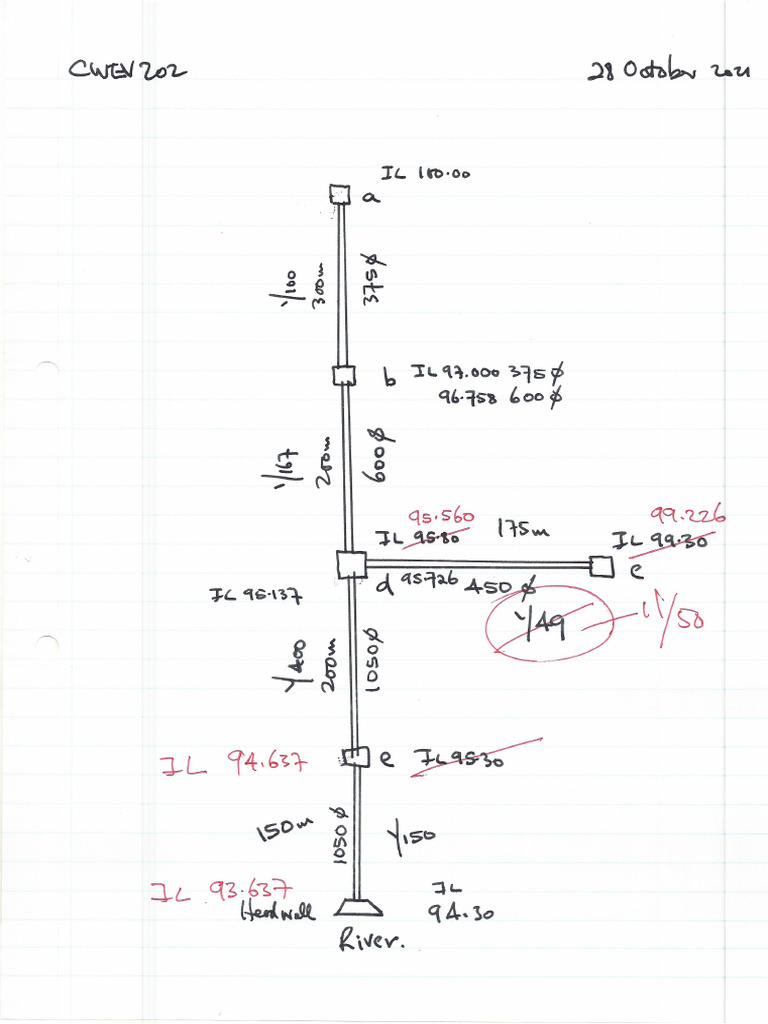 CWEN202
28 October 2021
IL 100.00
a
1/100
300m
375ϕ
b
IL 97.000 375ϕ
96.758 600ϕ
1/167
200m
600ϕ
95.560
IL 95.80
175m
99.226
IL 99.30
c
d
95.726
450ϕ
IL 95.137
1/49
1/50
1/400
200m
1050ϕ
IL 94.637
e
IL 95.30
150m
1050ϕ
1/150
IL 93.637
Headwall
IL
94.30
River.